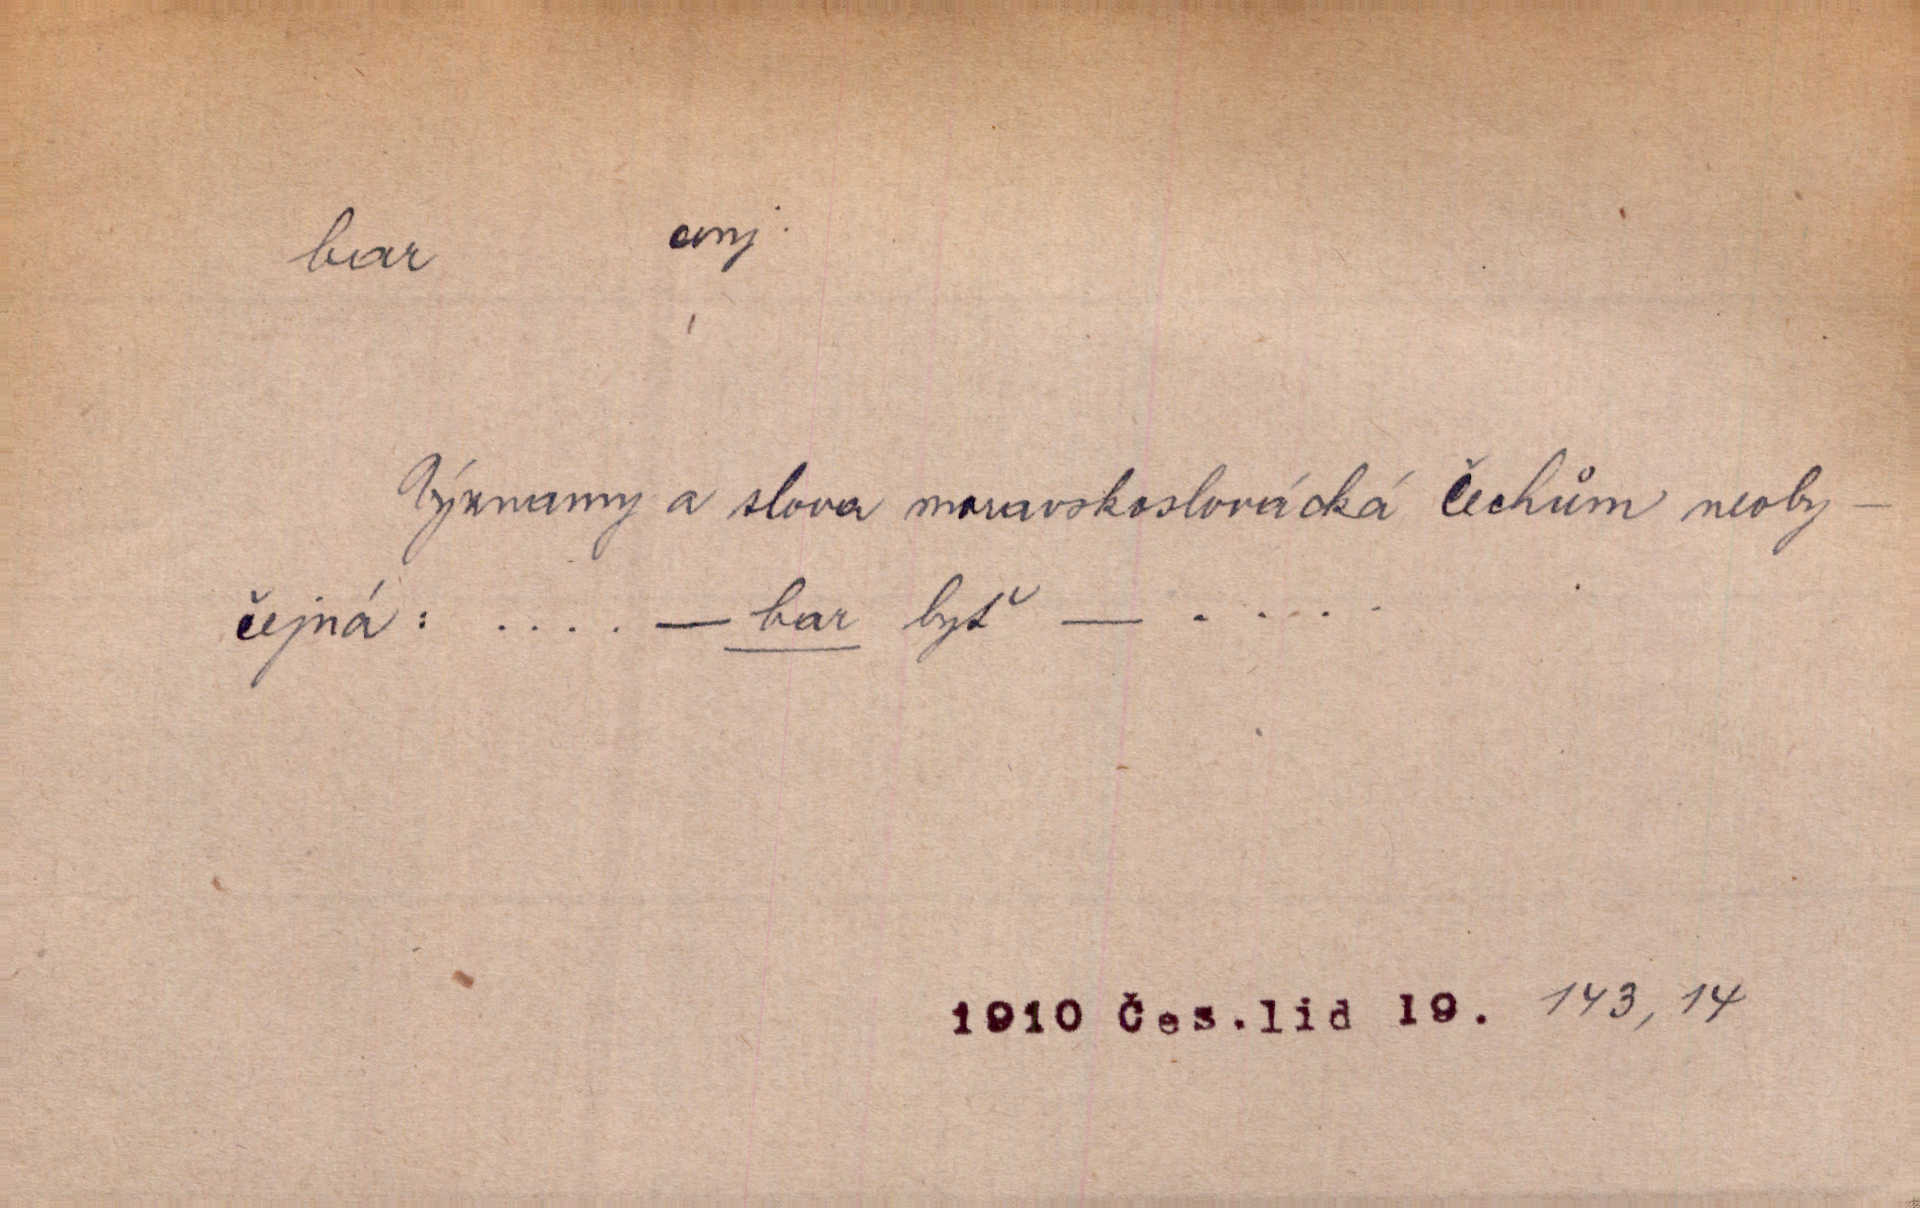 bar conj.
Významy a slova moravskoslovácká Čechům neoby-
čejná: .... — bar byť — .....
1910 Čes.lid 19. 143, 14